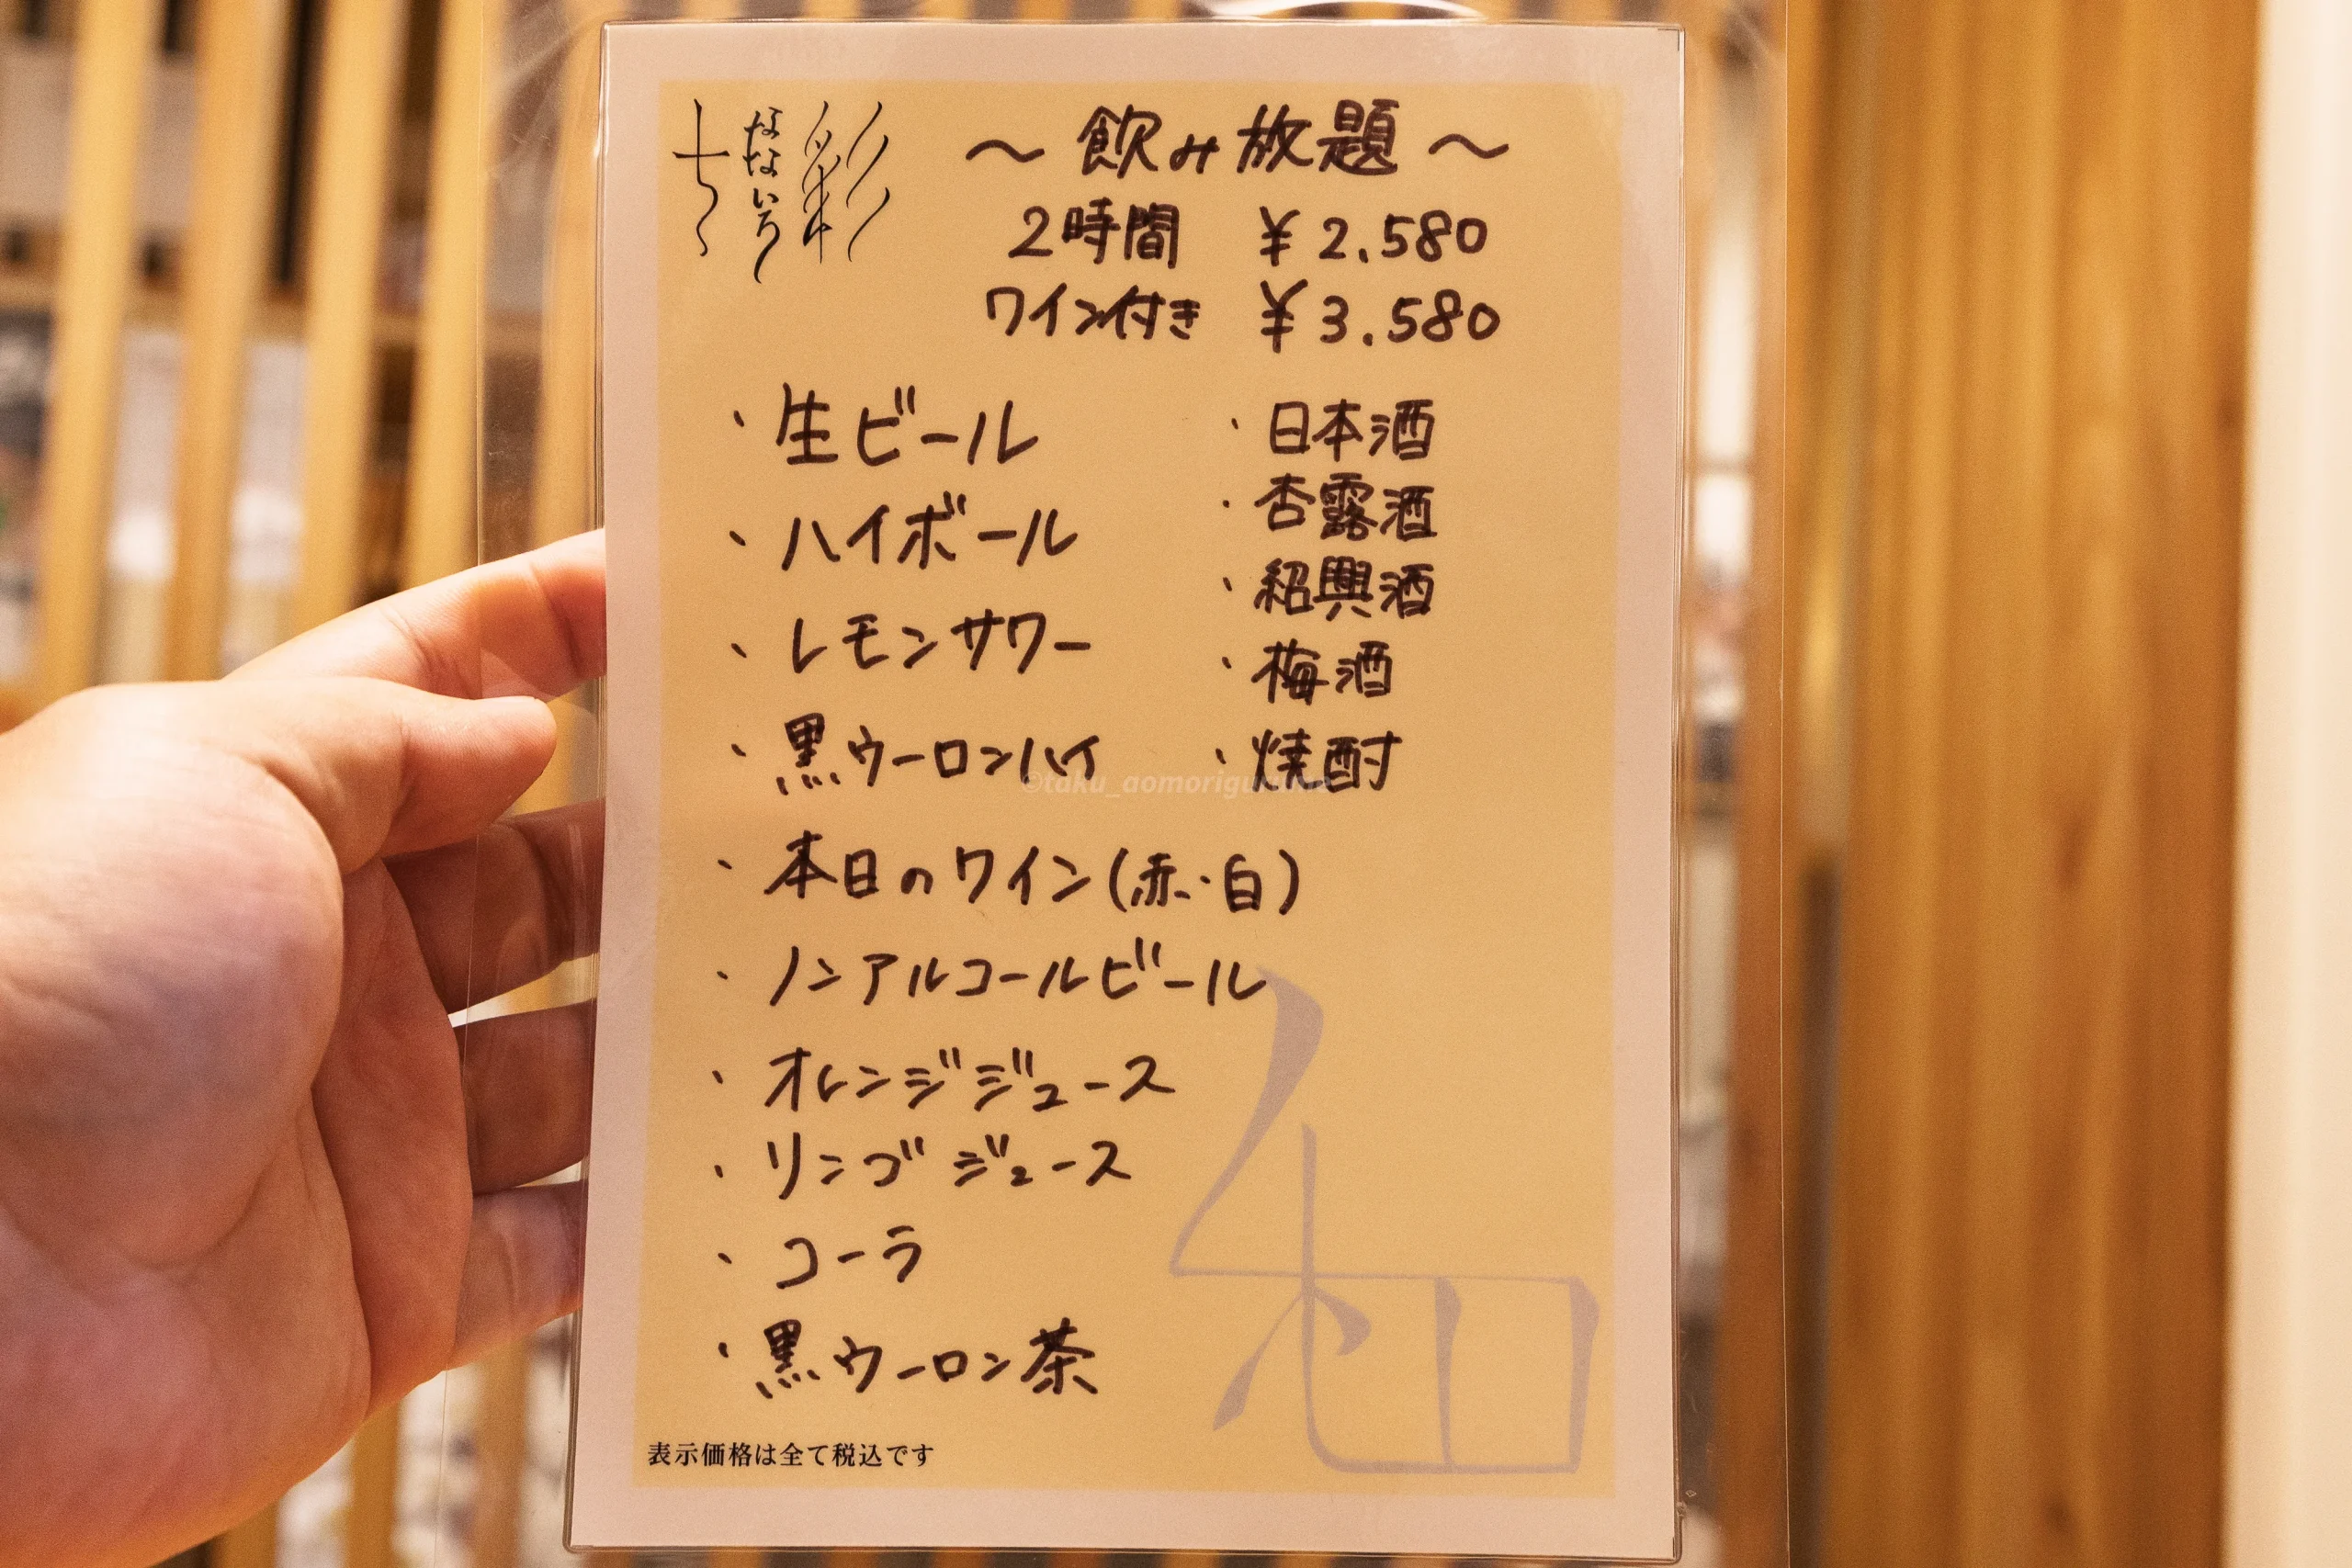 七彩
なないろ
～飲み放題～
2時間 ¥2.580
ワイン付き ¥3.580
・生ビール
・ハイボール
・レモンサワー
・黒ウーロンハイ
・日本酒
・杏露酒
・紹興酒
・梅酒
・焼酎
・本日のワイン(赤・白)
・ノンアルコールビール
・オレンジジュース
・リンゴジュース
・コーラ
・黒ウーロン茶
表示価格は全て税込です